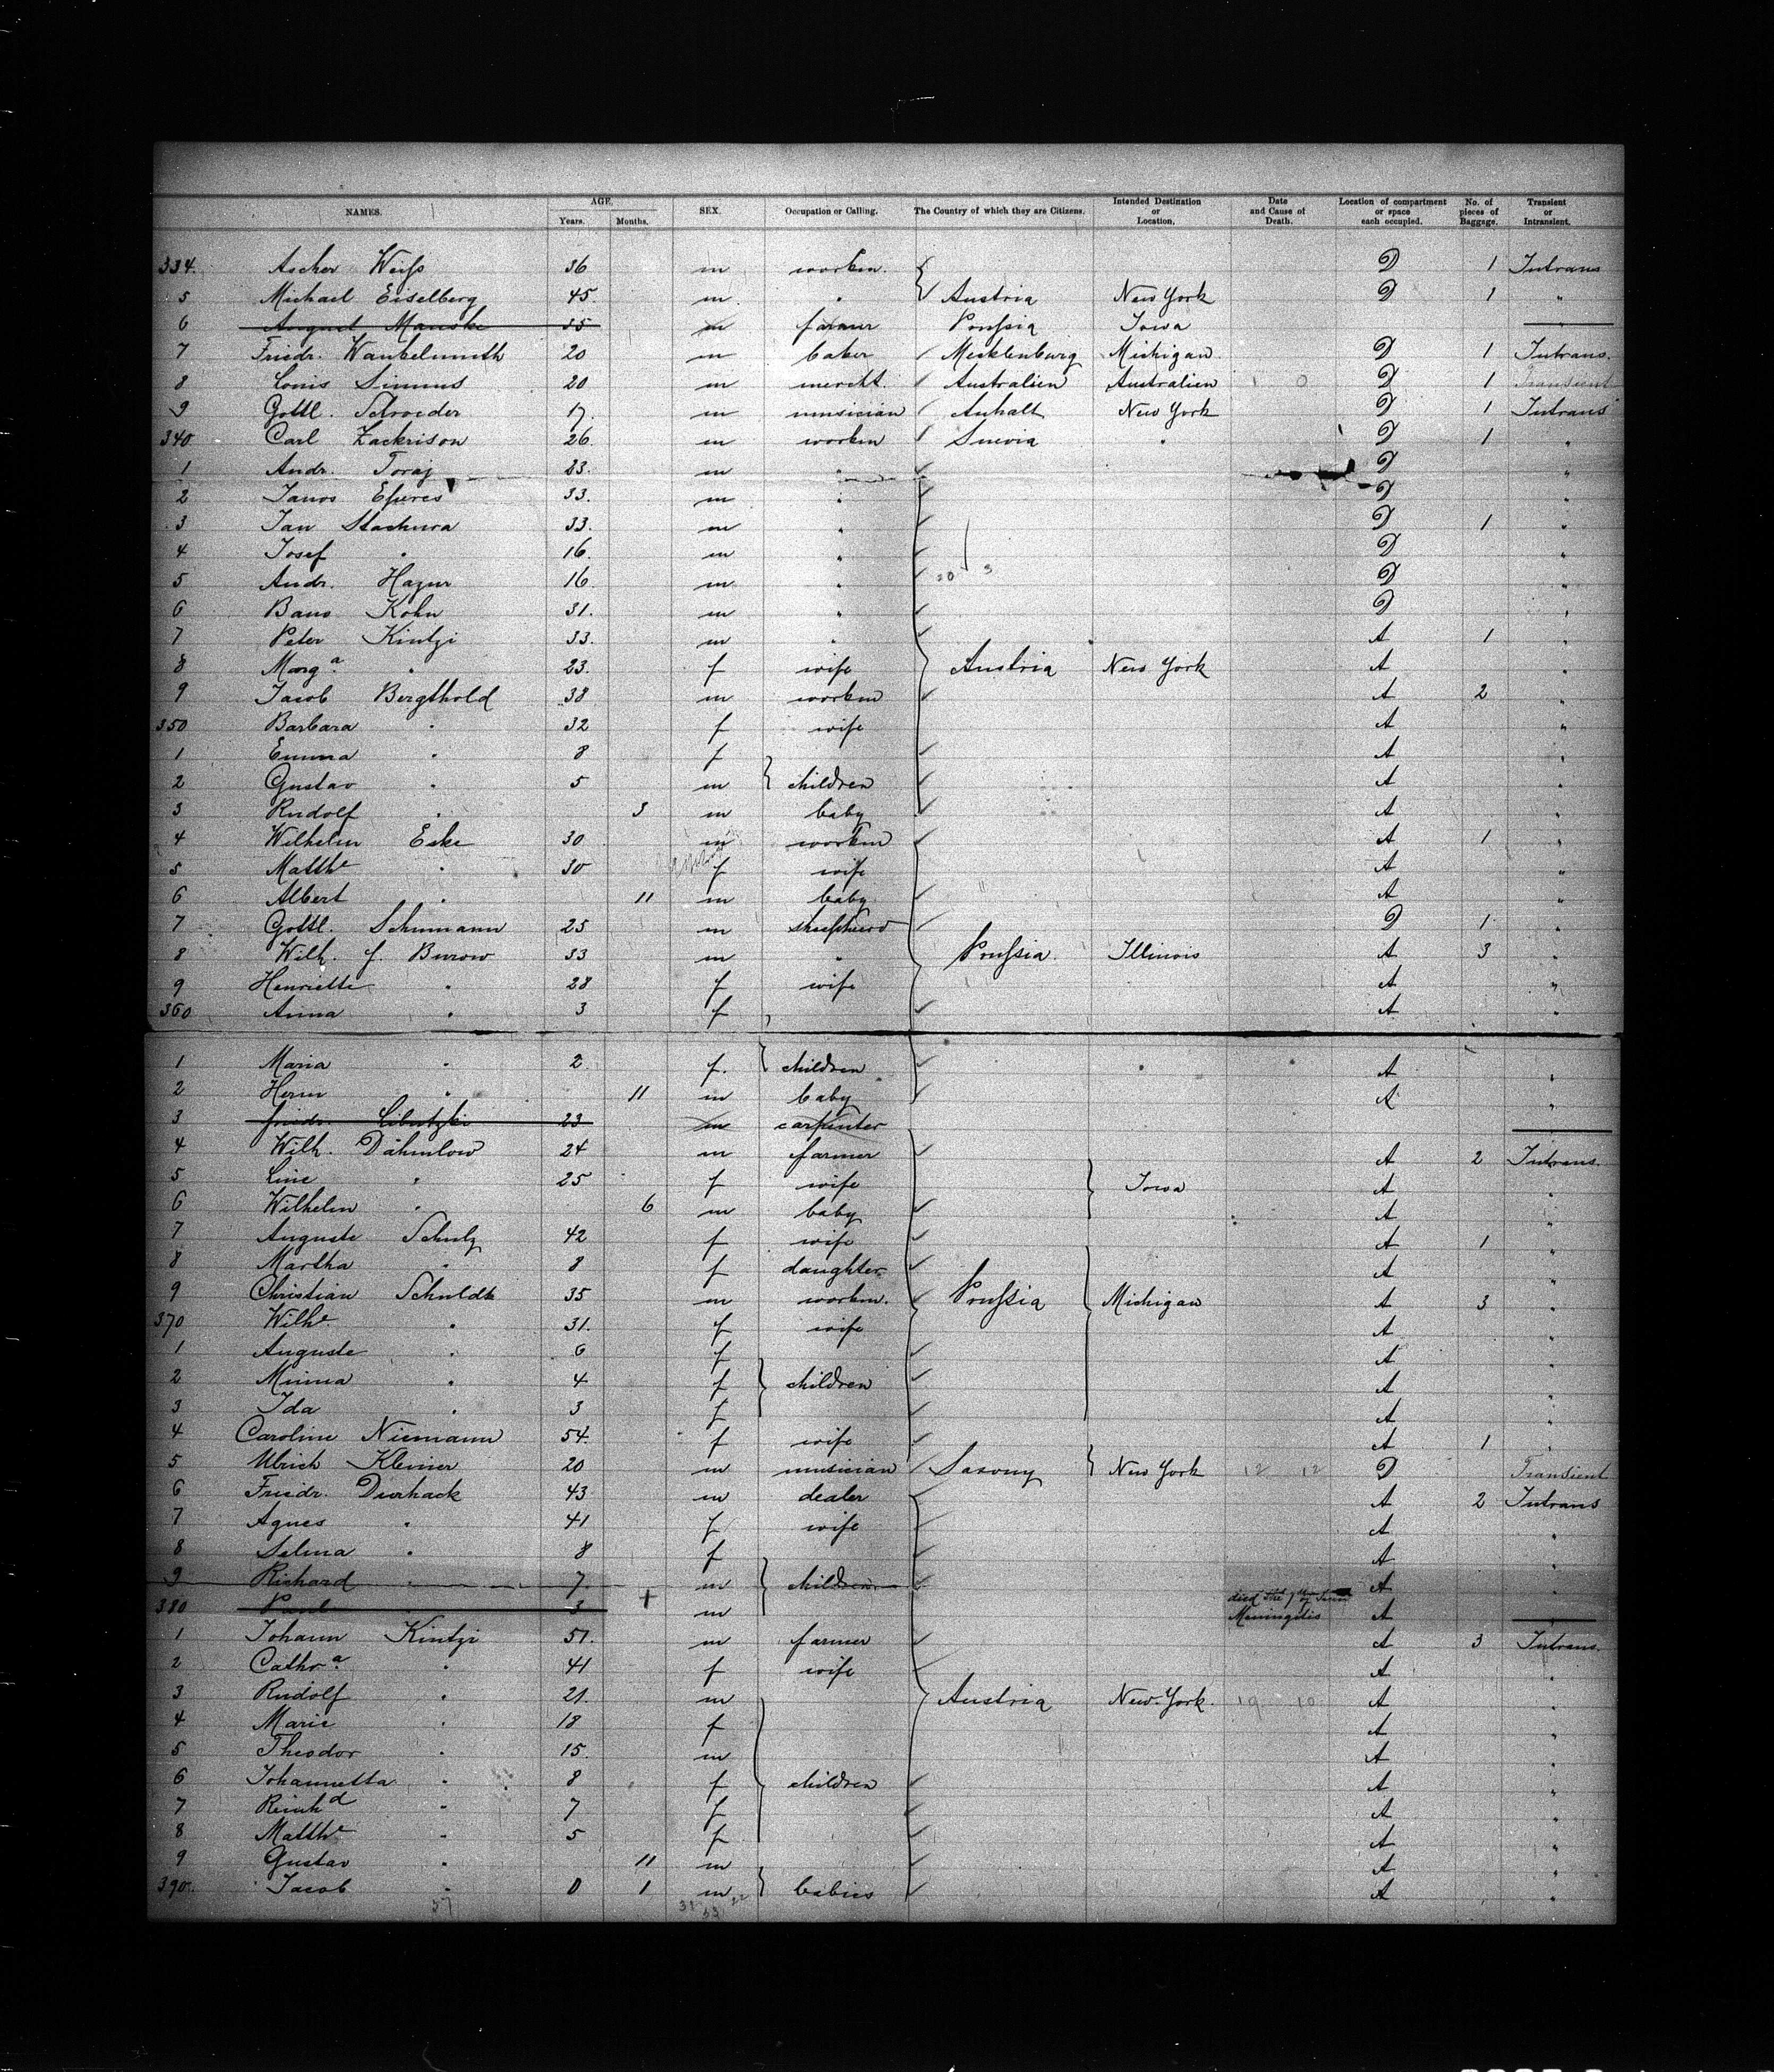 NAMES. AGE. Years. Months. SEX. Occupation or Calling. The Country of which they are Citizens. Intended Destination or Location. Date and Cause of Death. Location of compartment or space each occupied. No. of pieces of Baggage. Transient or Intransient.
334. Ascher Weiſs 36 m workm. D 1 Intrans
5 Michael Eiselberg 45 m " Austria New York D 1 "
6 August Manske 35 m farmer Pruſsia Iowa
7 Friedr. Wankelmuth 20 m baker Mecklenburg Michigan D 1 Intrans.
8 Louis Simms 20 m mercht. Australien Australien D 1 Transient
9 Gottl. Schroeder 17. m musician Anhalt New York D 1 Intrans
340 Carl Zackrison 26 m workm Suevia " D 1 "
1 Andr. Toraj 23. m " D "
2 Janos 33. m " D "
3 Jan Stachura 33. m " D 1 "
4 Josef " 16. m " D "
5 Andr. Hazur 16. m " D "
6 Kohn 31. m " D "
7 Peter Kintzi 33. m " A 1 "
8 Marg.a " 23. f wife Austria New York A "
9 Jacob Bergthold 38 m workm A 2 "
350 Barbara " 32 f wife A "
1 Emma " 8 f A "
2 Gustav " 5 m children A "
3 Rudolf " 3 m baby A "
4 Wilhelm Eske 30 m workm A 1 "
5 Mathe " 30 f wife A "
6 Albert " 11 m baby A "
7 Gottl. Schumann 25 m shepherd D 1 "
8 Wilh. f. Burow 33 m " Pruſsia. Illinois A 3 "
9 Henriette " 28 f wife A "
360 Anna " 3 f A "
1 Maria " 2 f. children A "
2 Herm " 11 m baby A "
3 friedr. 23 m carpenter
4 Wilh. Dähmlow 24 m farmer A 2 Intrans.
5 Line " 25 f wife Iowa A "
6 Wilhelm " 6 m baby A "
7 Auguste Schulz 42 f wife A 1 "
8 Martha " 8 f daughter A "
9 Christian Schuldt 35 m workm. Pruſsia Michigan A 3 "
370 Wilhe. " 31. f wife A "
1 Auguste " 6 f A "
2 Minna " 4 f children A "
3 Ida " 3 f A "
4 Caroline Niemann 54. f wife A 1 "
5 Ulrich Kleiner 20 m musician Saxony New York 12 12 D Transient
6 Friedr. Dierhack 43 m dealer A 2 Intrans
7 Agnes " 41 f wife A "
8 Selma " 8 f A "
9 Richard " 7. m children A "
380 Paul " 3 + m died the 7th of Meningitis A
1 Johann Kintzi 51. m farmer A 3 Intrans.
2 Cathr.a " 41 f wife A "
3 Rudolf " 21. m Austria New-York 19 10 A "
4 Marie " 18 f A "
5 Theodor " 15. m A "
6 Johannetta " 8 f children A "
7 Reinhd " 7 f A "
8 Mathe " 5 f A "
9 Gustav " 11 m A "
390. Jacob " 0 1 m babies A "
57 31 33 22